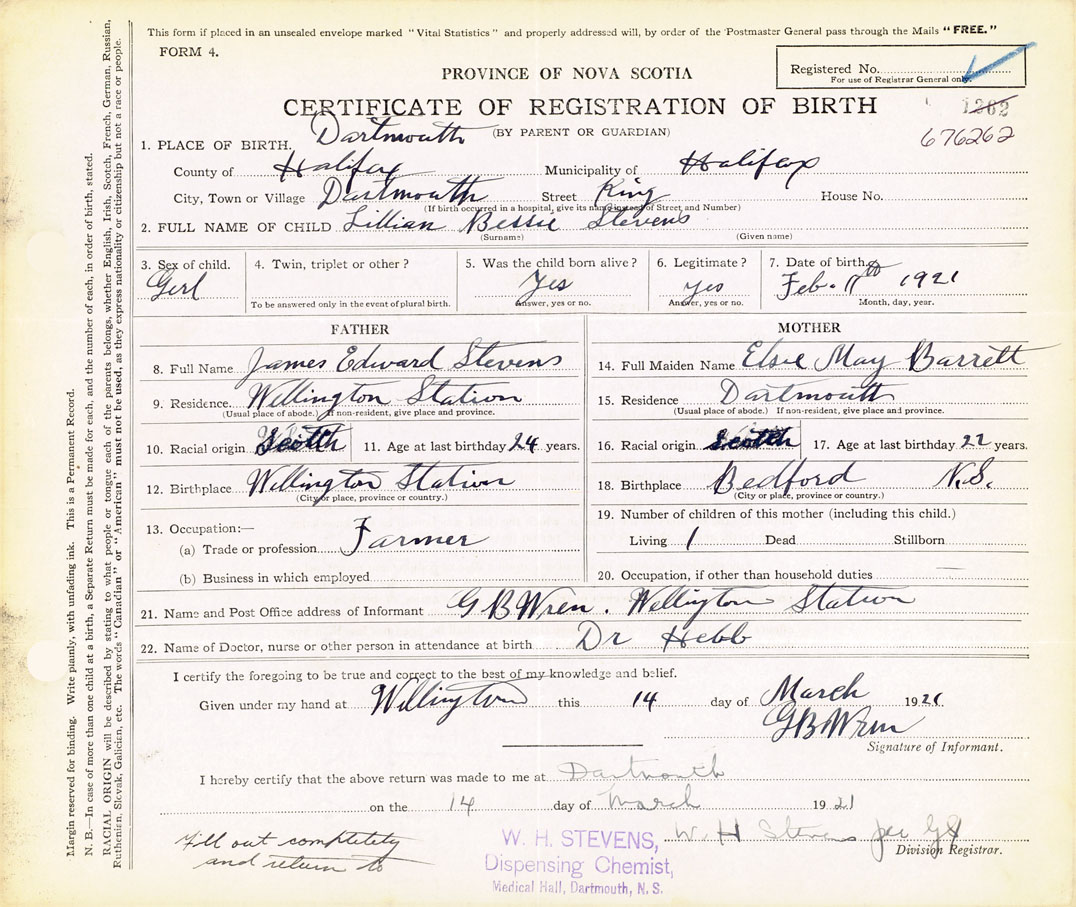 This form if placed in an unsealed envelope marked "Vital Statistics" and properly addressed will, by order of the Postmaster General pass through the Mails "FREE."
FORM 4.
PROVINCE OF NOVA SCOTIA
Registered No.
For use of Registrar General only.
CERTIFICATE OF REGISTRATION OF BIRTH
1262
(BY PARENT OR GUARDIAN)
676262
1. PLACE OF BIRTH. Dartmouth
County of Halifax Municipality of Halifax
City, Town or Village Dartmouth Street King House No.
(If birth occurred in a hospital, give its name instead of Street and Number)
2. FULL NAME OF CHILD Lillian Bessie Stevens
(Surname) (Given name)
3. Sex of child. 4. Twin, triplet or other? 5. Was the child born alive? 6. Legitimate? 7. Date of birth.
Girl Yes yes Feb. 11th 1921
To be answered only in the event of plural birth. Answer, yes or no. Answer, yes or no. Month, day, year.
FATHER
8. Full Name James Edward Stevens
9. Residence Wellington Station
(Usual place of abode.) If non-resident, give place and province.
10. Racial origin Scotch 11. Age at last birthday 24 years.
12. Birthplace Wellington Station
(City or place, province or country.)
13. Occupation:—
(a) Trade or profession Farmer
(b) Business in which employed
MOTHER
14. Full Maiden Name Elsie May Barrett
15. Residence Dartmouth
(Usual place of abode.) If non-resident, give place and province.
16. Racial origin Scotch 17. Age at last birthday 22 years.
18. Birthplace Bedford N.S.
(City or place, province or country.)
19. Number of children of this mother (including this child.)
Living 1 Dead Stillborn
20. Occupation, if other than household duties
21. Name and Post Office address of Informant G B Wren. Wellington Station
22. Name of Doctor, nurse or other person in attendance at birth Dr Hebb
I certify the foregoing to be true and correct to the best of my knowledge and belief.
Given under my hand at Wellington this 14 day of March 1921.
G B Wren
Signature of Informant.
I hereby certify that the above return was made to me at Dartmouth
on the 14 day of March 1921
W. H Stevens per
Division Registrar.
Fill out completely
and return to
W. H. STEVENS,
Dispensing Chemist,
Medical Hall, Dartmouth, N. S.
Margin reserved for binding. Write plainly, with unfading ink. This is a Permanent Record.
N. B.—In case of more than one child at a birth, a Separate Return must be made for each, and the number of each, in order of birth, stated.
RACIAL ORIGIN will be described by stating to what people or tongue each of the parents belongs, whether English, Irish, Scotch, French, German, Russian,
Ruthenian, Slovak, Galician, etc. The words "Canadian" or "American" must not be used, as they express nationality or citizenship but not a race or people.